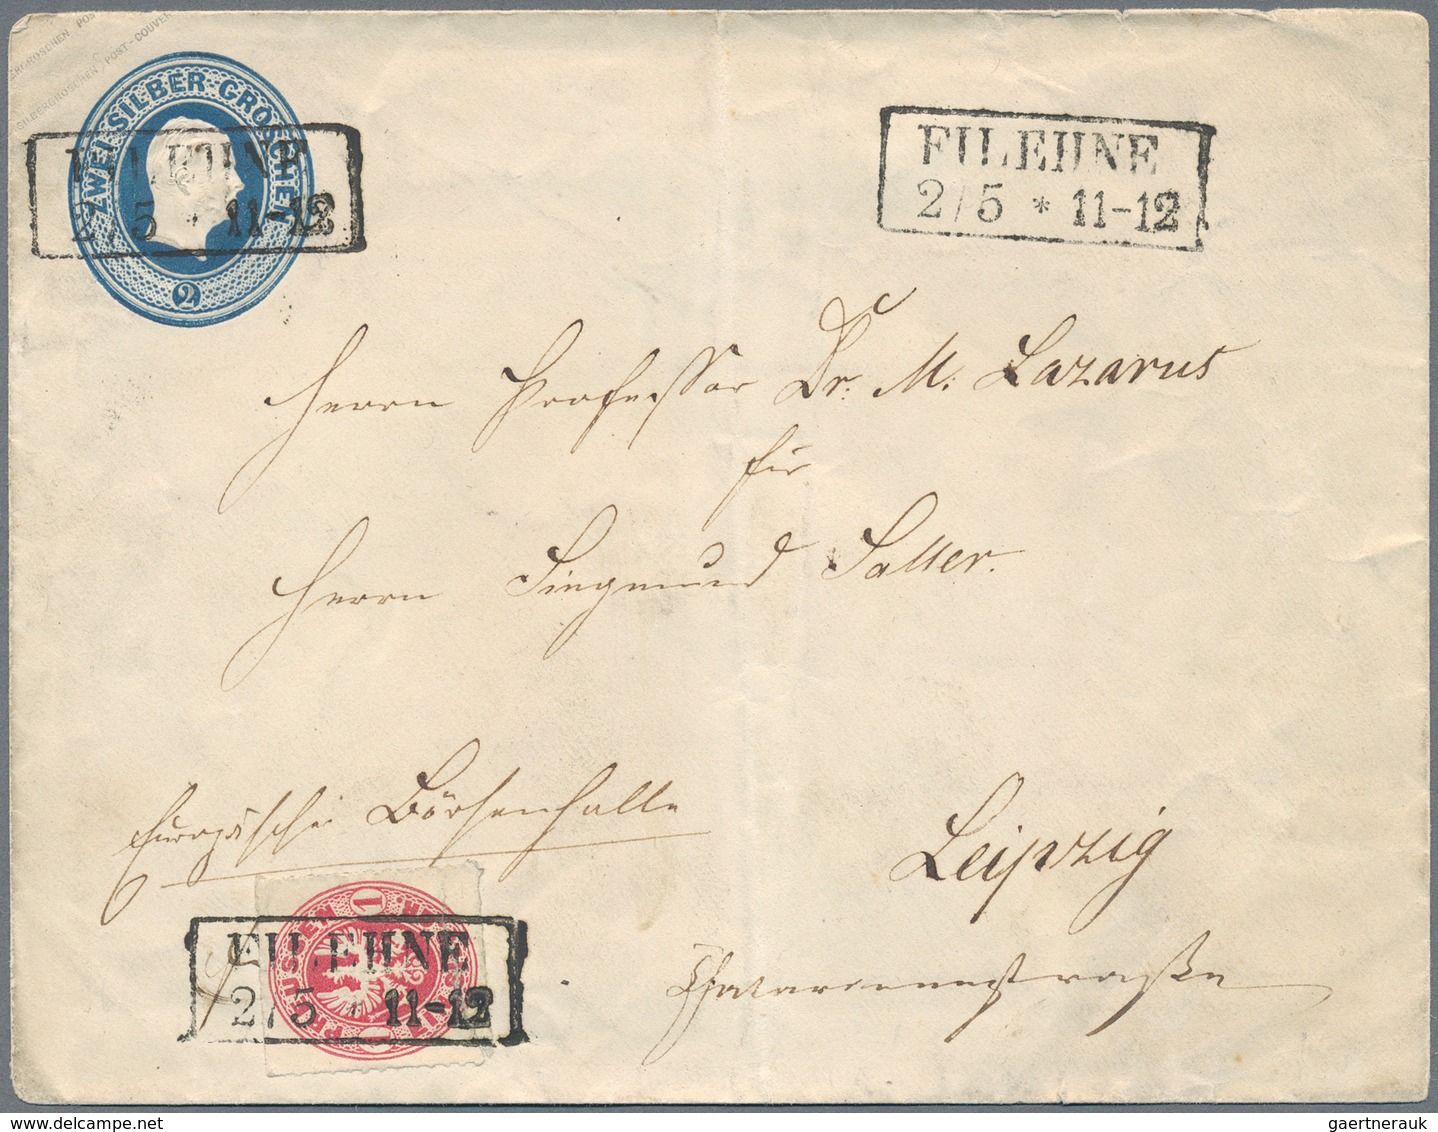 SILBERGROSCHEN POST-COUVERT
ZWEI SILBER-GROSCHEN
2
FILEHNE
2/5 * 11-12
FILEHNE
2/5 * 11-12
Herrn Professor Dr. M. Lazarus
für
Herrn Siegmund Saller.
Europäische Börsenhalle
Leipzig
PREUSSEN 1
1
FILEHNE
2/5 * 11-12
gaertnerauk